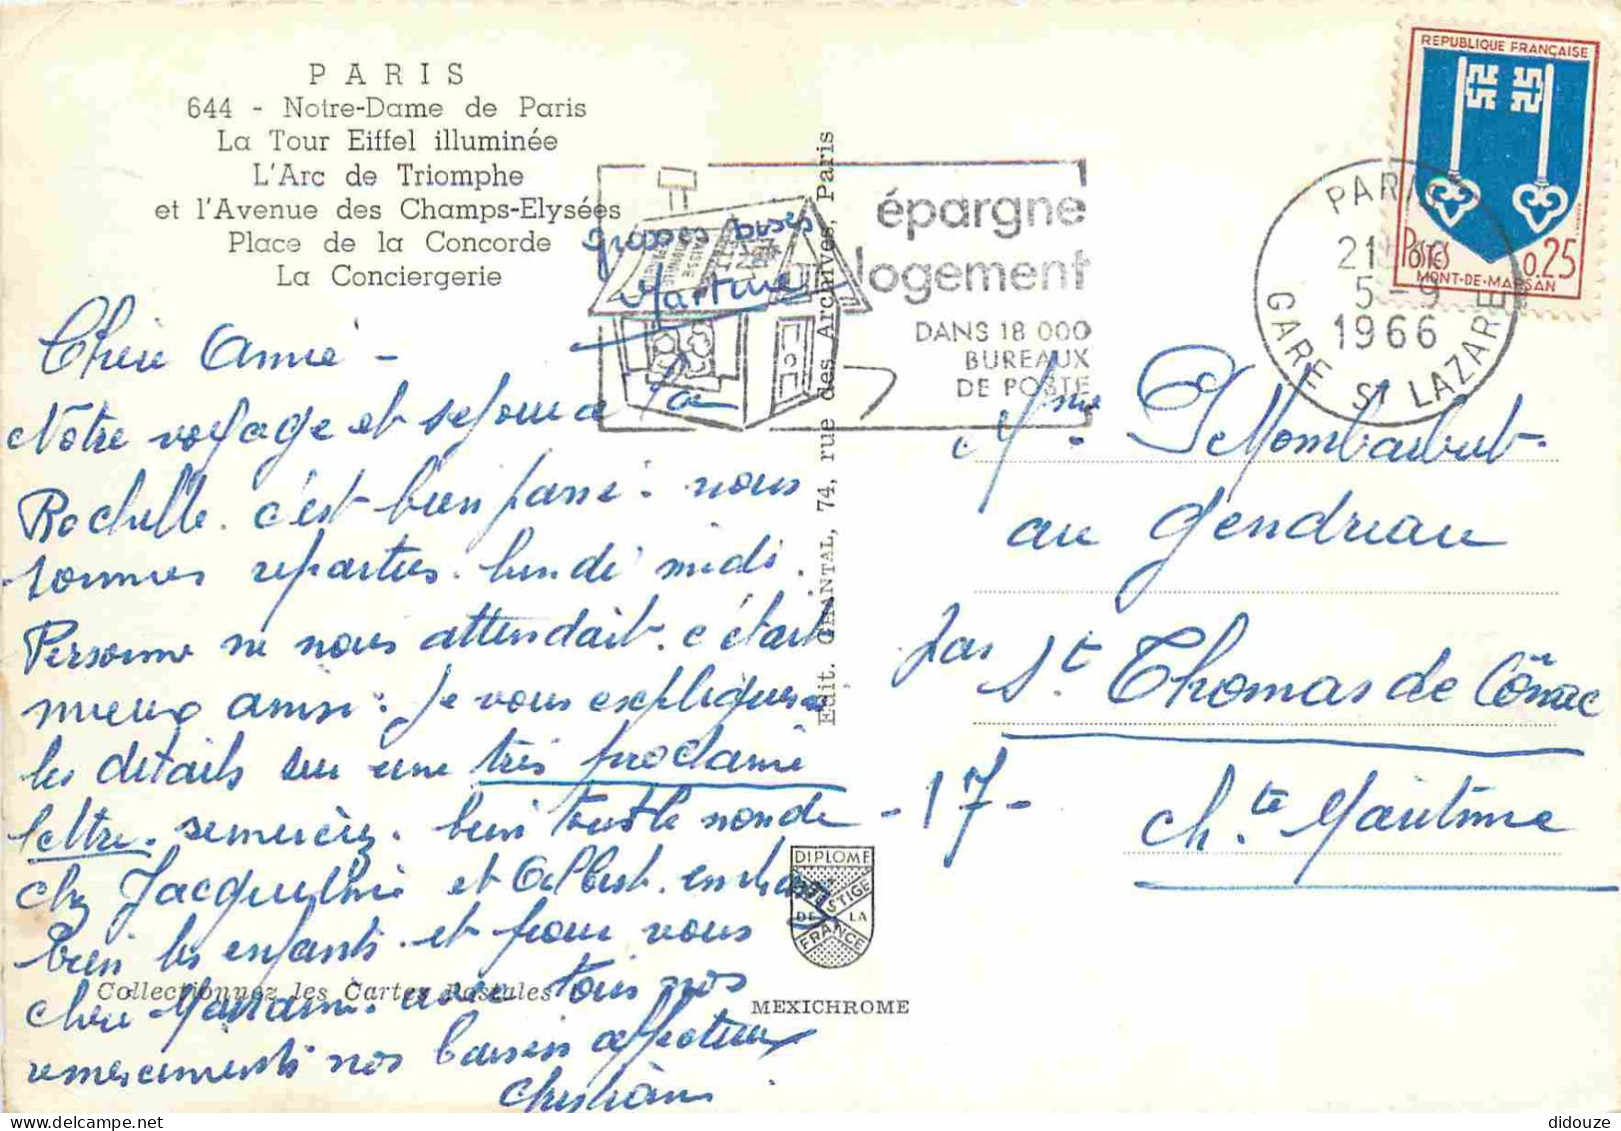 PARIS
644 - Notre-Dame de Paris
La Tour Eiffel illuminée
L'Arc de Triomphe
et l'Avenue des Champs-Elysées
Place de la Concorde
La Conciergerie
grosses bises
Martine
Chère Amie -
Notre voyage et sejour a La
Rochelle. c'est bien passé. nous
sommes reparties. lundi midi.
Personne ne nous attendait. c'était
mieux ainsi. je vous expliquerai
les détails sur une très prochaine
lettre. remercièz. bien tout le monde
chez Jacqueline et Albert. embrassez
bien les enfants. et pour vous
chère Madame. avec tous nos
remerciements nos baisers affectueux
Christiane
Collectionnez les Cartes Postales
Edit. CHANTAL, 74, rue des Archives, Paris
DIPLOME
PRESTIGE
DE LA
FRANCE
MEXICHROME
épargne
logement
DANS 18 000
BUREAUX
DE POSTE
PARIS
21
5 - 9
1966
GARE ST LAZARE
REPUBLIQUE FRANÇAISE
POSTES
0.25
MONT-DE-MARSAN
Mme
au Gendreau
par St. Thomas de Cônac
- 17 -
Ch.te Maritime
didouze